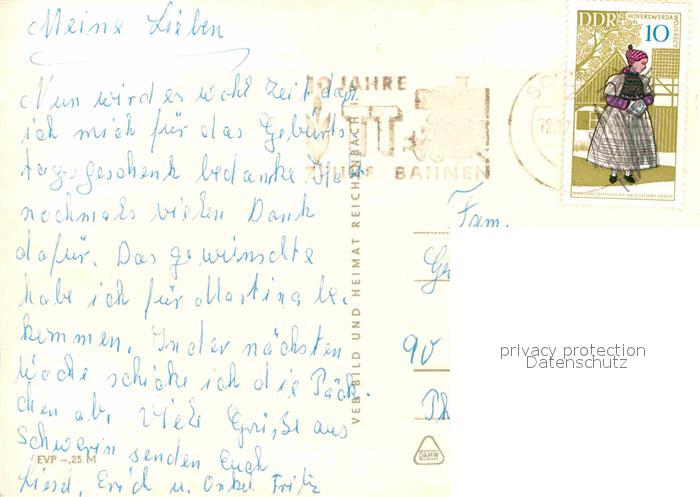 Meine Lieben
Nun wird es wohl Zeit daß
ich mich für das Geburts-
tagsgeschenk bedanke.
nochmals vielen Dank
dafür. Das gewünschte
habe ich für Martina be-
kommen. In der nächsten
Woche schicke ich die Päck-
chen ab. Viele Grüße aus
Schwerin senden Euch
Liesel, Erich u. Onkel Fritz
EVP -,25 M
VEB BILD UND HEIMAT REICHENBACH I.
JAHRE
TT
BAHNEN
DDR
HOYERSWERDA
WOJERECY
10
Fam.
90
DAMW
privacy protection
Datenschutz